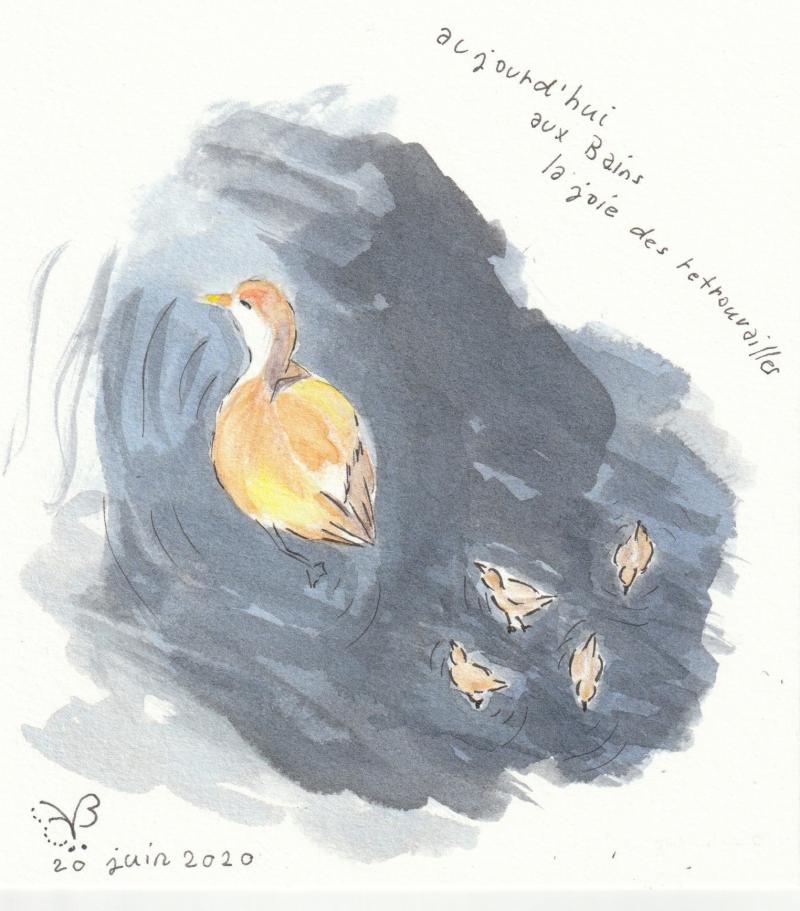 aujourd'hui
aux Bains
la joie des retrouvailles
VB
20 juin 2020